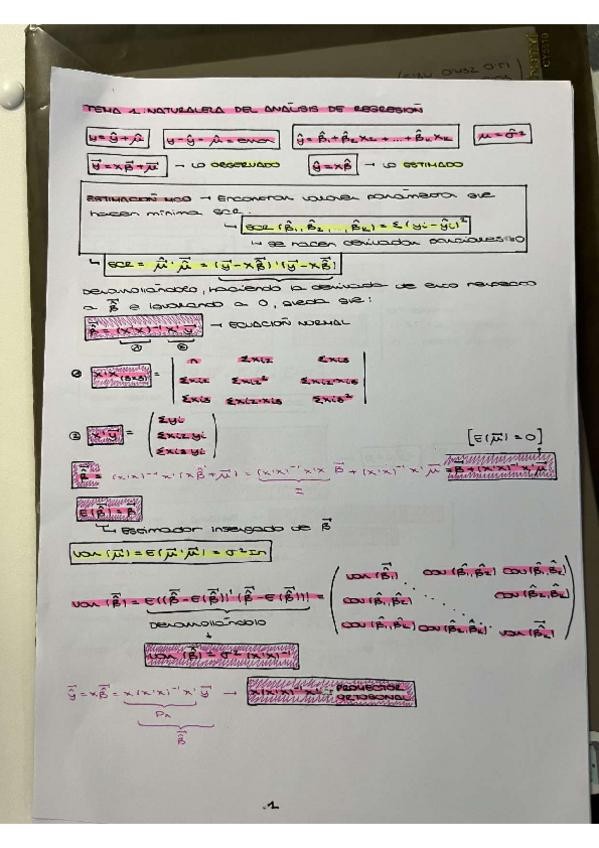 TEMA 1: NATURALEZA DEL ANÁLISIS DE REGRESIÓN
y = ŷ + μ̂    y - ŷ = μ̂ = error    ŷ = β̂₁ + β̂₂x₂ + ... + β̂ₖxₖ    μ = σ̂²
y⃗ = xβ⃗ + μ⃗ → LO OBSERVADO    ŷ = xβ̂ → LO ESTIMADO
ESTIMACIÓN MCO → Encontrar valores parámetros que
hacen mínima SCR.
↳ SCR (β̂₁, β̂₂, ..., β̂ₖ) = Σ(yi - ŷi)²
↳ se hacen derivadas parciales = 0
↳ SCR = μ̂' μ̂ = (y⃗ - xβ̂)'(y⃗ - xβ̂)
Desarrollándolo, haciendo la derivada de esto respecto
a β̂ e igualando a 0, queda que:
β̂ = (x'x)⁻¹ x'y⃗ → ECUACIÓN NORMAL
① ②
① x'x (3x3) =
n    Σxi2    Σxi3
Σxi2    Σxi2²    Σxi2·xi3
Σxi3    Σxi2·xi3    Σxi3²
② x'y⃗ =
Σyi
Σxi2 yi
Σxi3 yi
[E(μ⃗) = 0]
β̂ = (x'x)⁻¹ x'(xβ⃗ + μ⃗) = (x'x)⁻¹ x'x β⃗ + (x'x)⁻¹ x' μ⃗ = β⃗ + (x'x)⁻¹ x'μ⃗
E(β̂) = β⃗
↳ Estimador insesgado de β⃗
var(μ⃗) = E(μ⃗·μ⃗') = σ²In
var(β̂) = E((β̂ - E(β̂))'(β̂ - E(β̂))) =
var(β̂₁)    cov(β̂₁,β̂₂)    cov(β̂₁,β̂ₖ)
cov(β̂₁,β̂₂)    cov(β̂₂,β̂ₖ)
cov(β̂₁,β̂ₖ)    cov(β̂₂,β̂ₖ)    var(β̂ₖ)
Desarrollándolo
var(β̂) = σ²(x'x)⁻¹
ŷ = xβ̂ = x(x'x)⁻¹ x' y⃗ → x(x'x)⁻¹x' = PROYECTOR ORTOGONAL
Px
β̂
.1